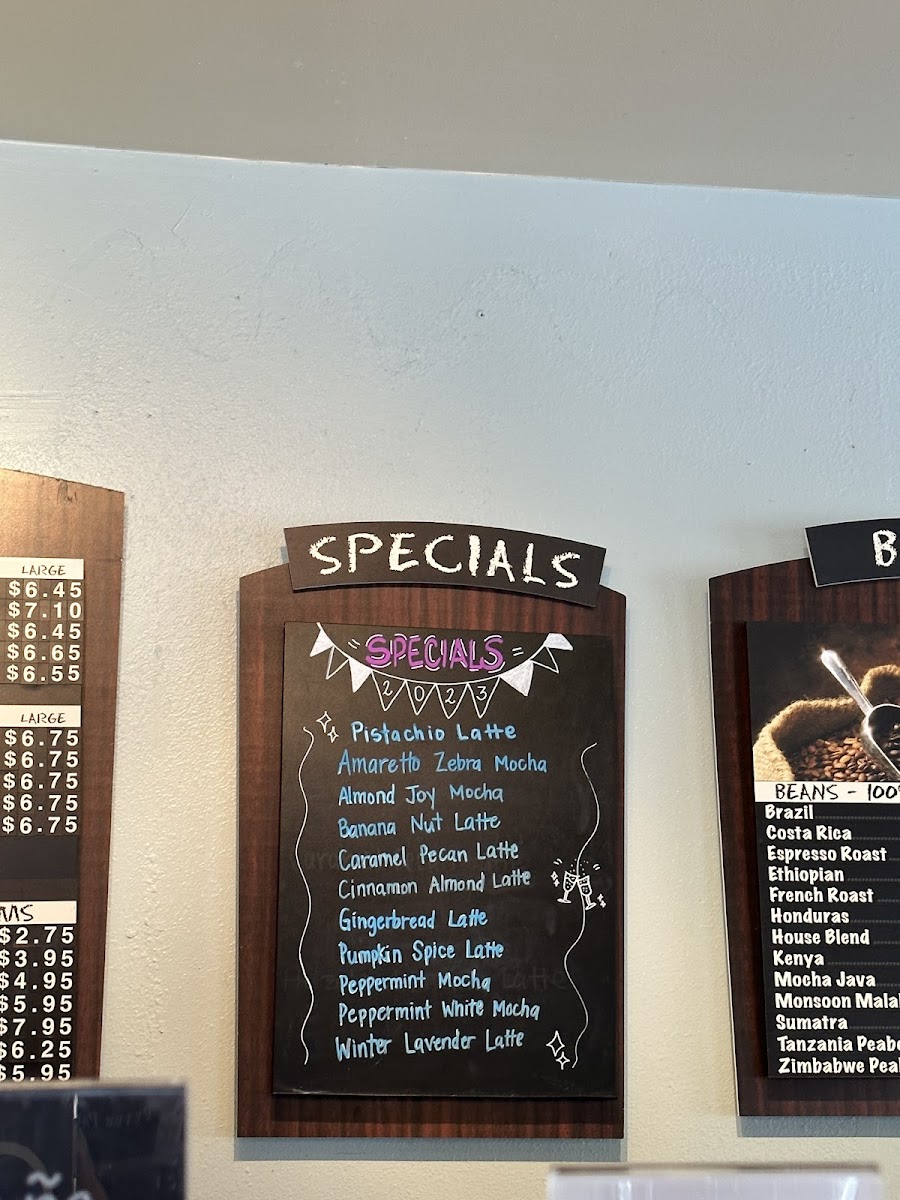 LARGE
$6.45
$7.10
$6.45
$6.65
$6.55
LARGE
$6.75
$6.75
$6.75
$6.75
$6.75
$2.75
$3.95
$4.95
$5.95
$7.95
$6.25
$5.95
SPECIALS
SPECIALS
2023
Pistachio Latte
Amaretto Zebra Mocha
Almond Joy Mocha
Banana Nut Latte
Caramel Pecan Latte
Cinnamon Almond Latte
Gingerbread Latte
Pumpkin Spice Latte
Peppermint Mocha
Peppermint White Mocha
Winter Lavender Latte
B
BEANS - 100%
Brazil
Costa Rica
Espresso Roast
Ethiopian
French Roast
Honduras
House Blend
Kenya
Mocha Java
Monsoon
Sumatra
Tanzania
Zimbabwe